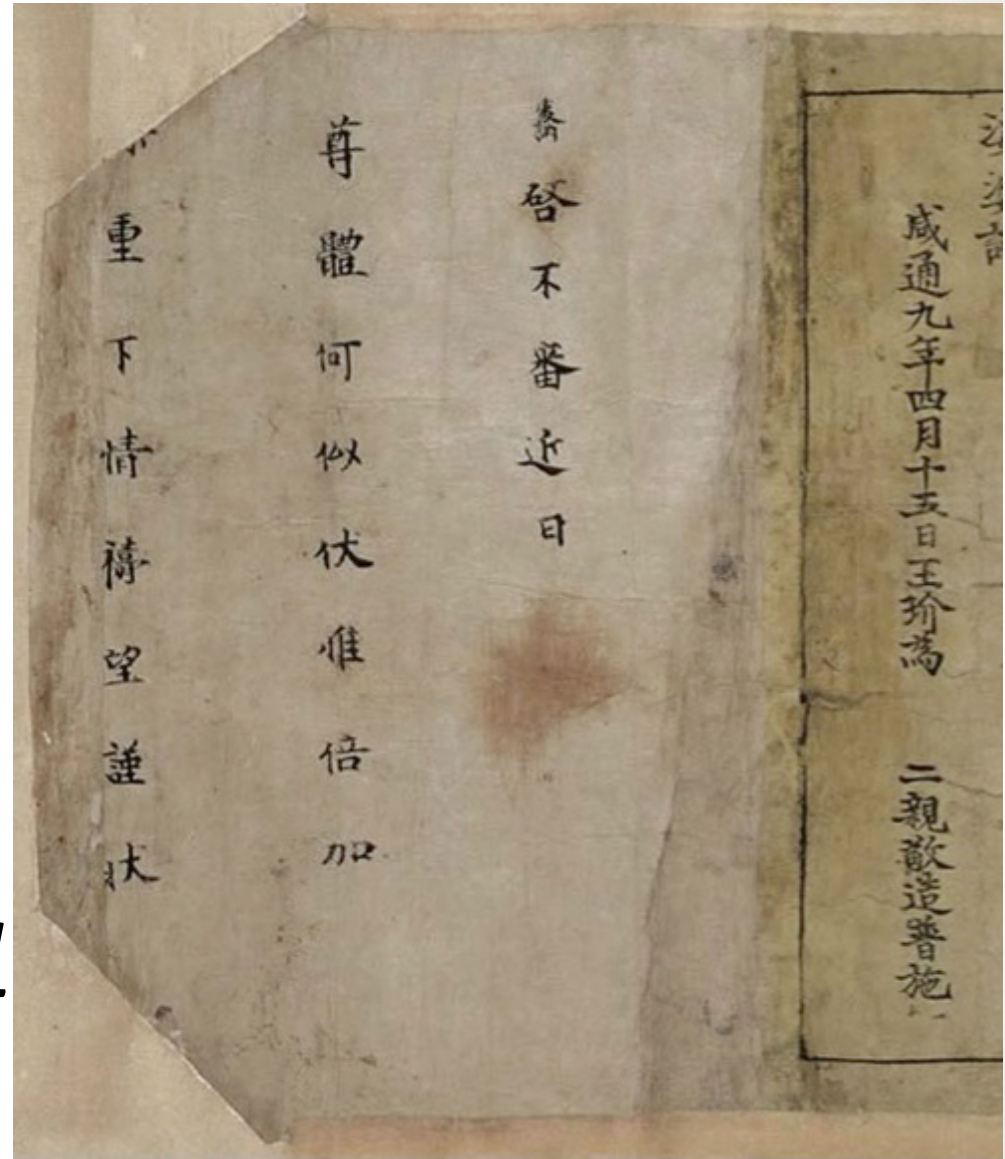 咸通九年四月十五日王玠爲 二親敬造普施
啓不審近日
尊體何似伏惟倍加
重下情禱望謹狀